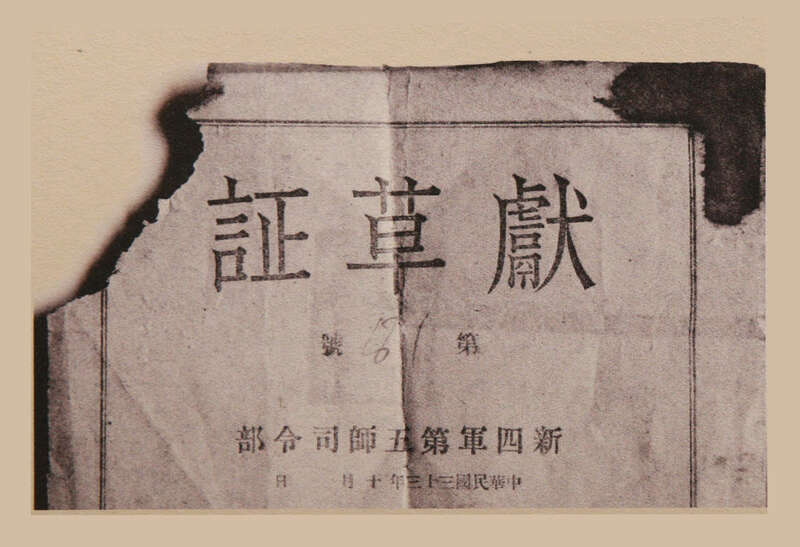 獻草証
第 號
新四軍第五師司令部
中華民國三十三年十月 日